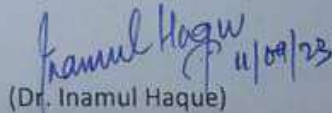 Inamul Haque
11/09/23
(Dr. Inamul Haque)